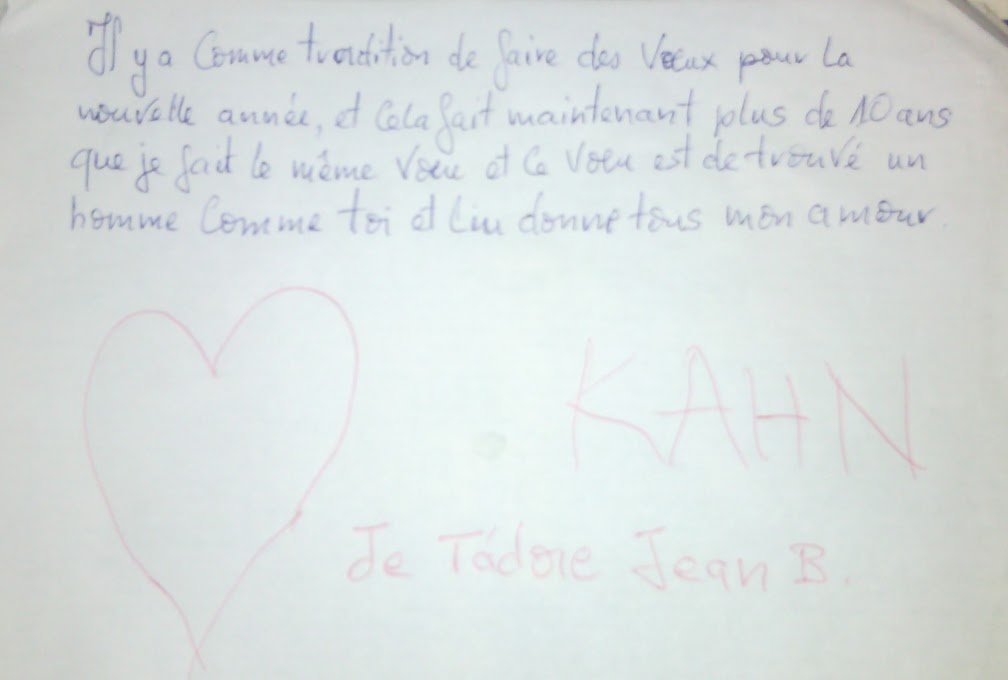 Il y a Comme tradition de faire des Vœux pour La
nouvelle année, et Cela fait maintenant plus de 10 ans
que je fait le même Vœu et Ce Vœu est de trouvé un
homme Comme toi et Liu donné tous mon amour.
KAHN
Je T'adore Jean B.